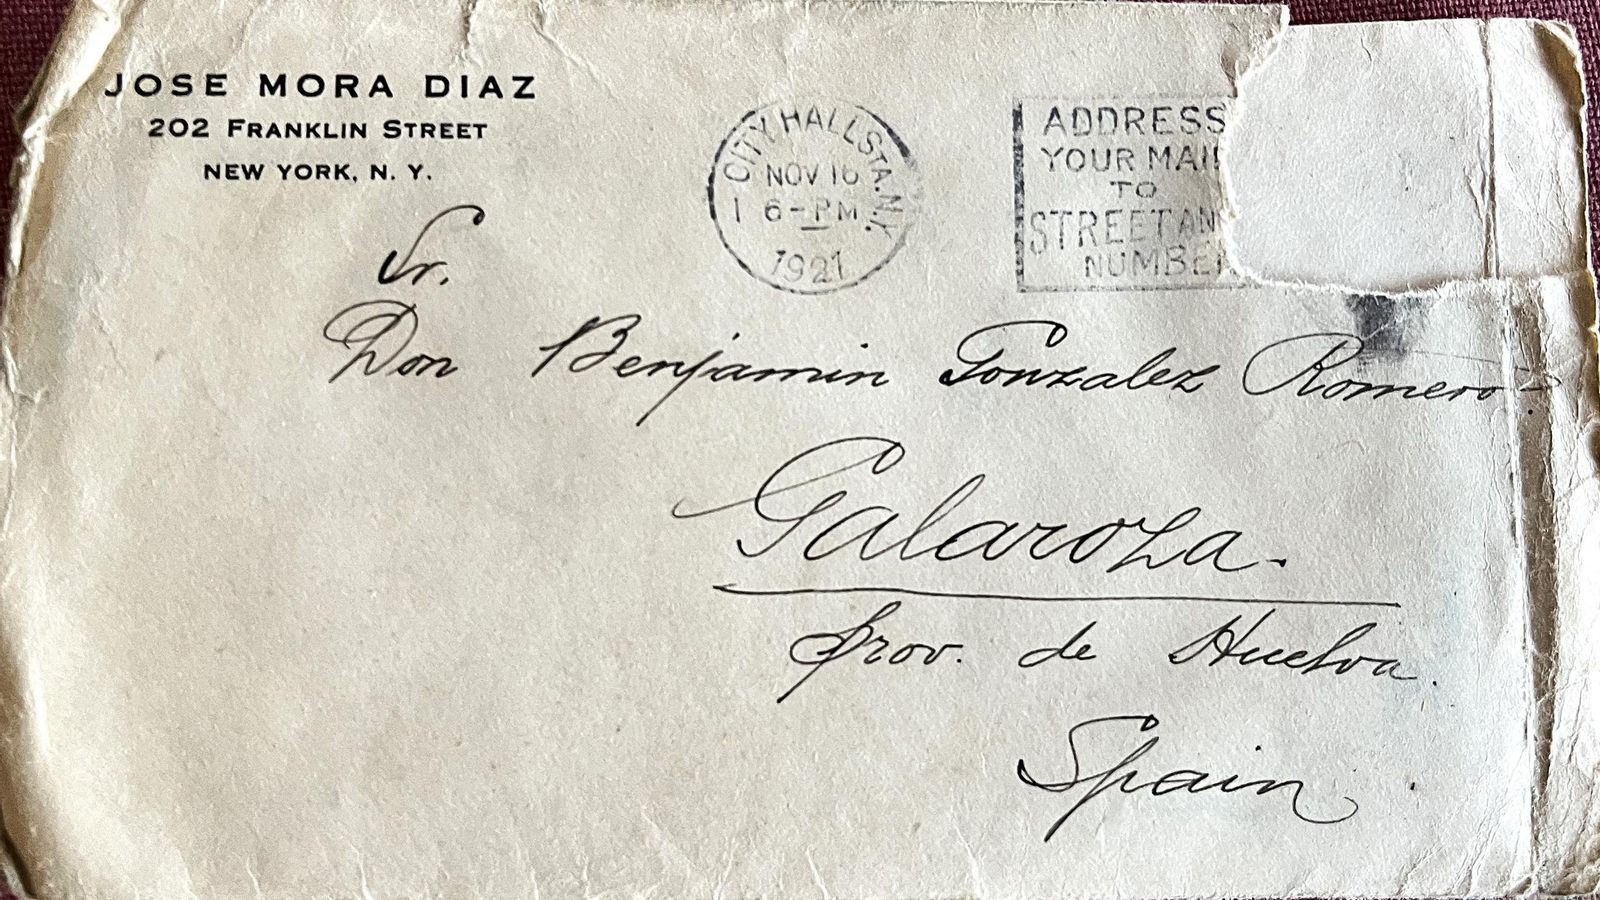 JOSE MORA DIAZ
202 FRANKLIN STREET
NEW YORK, N. Y.
CITY HALL STA. N.Y.
NOV 16
1 6-PM
1921
ADDRESS
YOUR MAIL
TO
STREET AND
NUMBER
Sr.
Don Benjamin Gonzalez Romero.
Galaroza.
prov. de Huelva.
Spain.